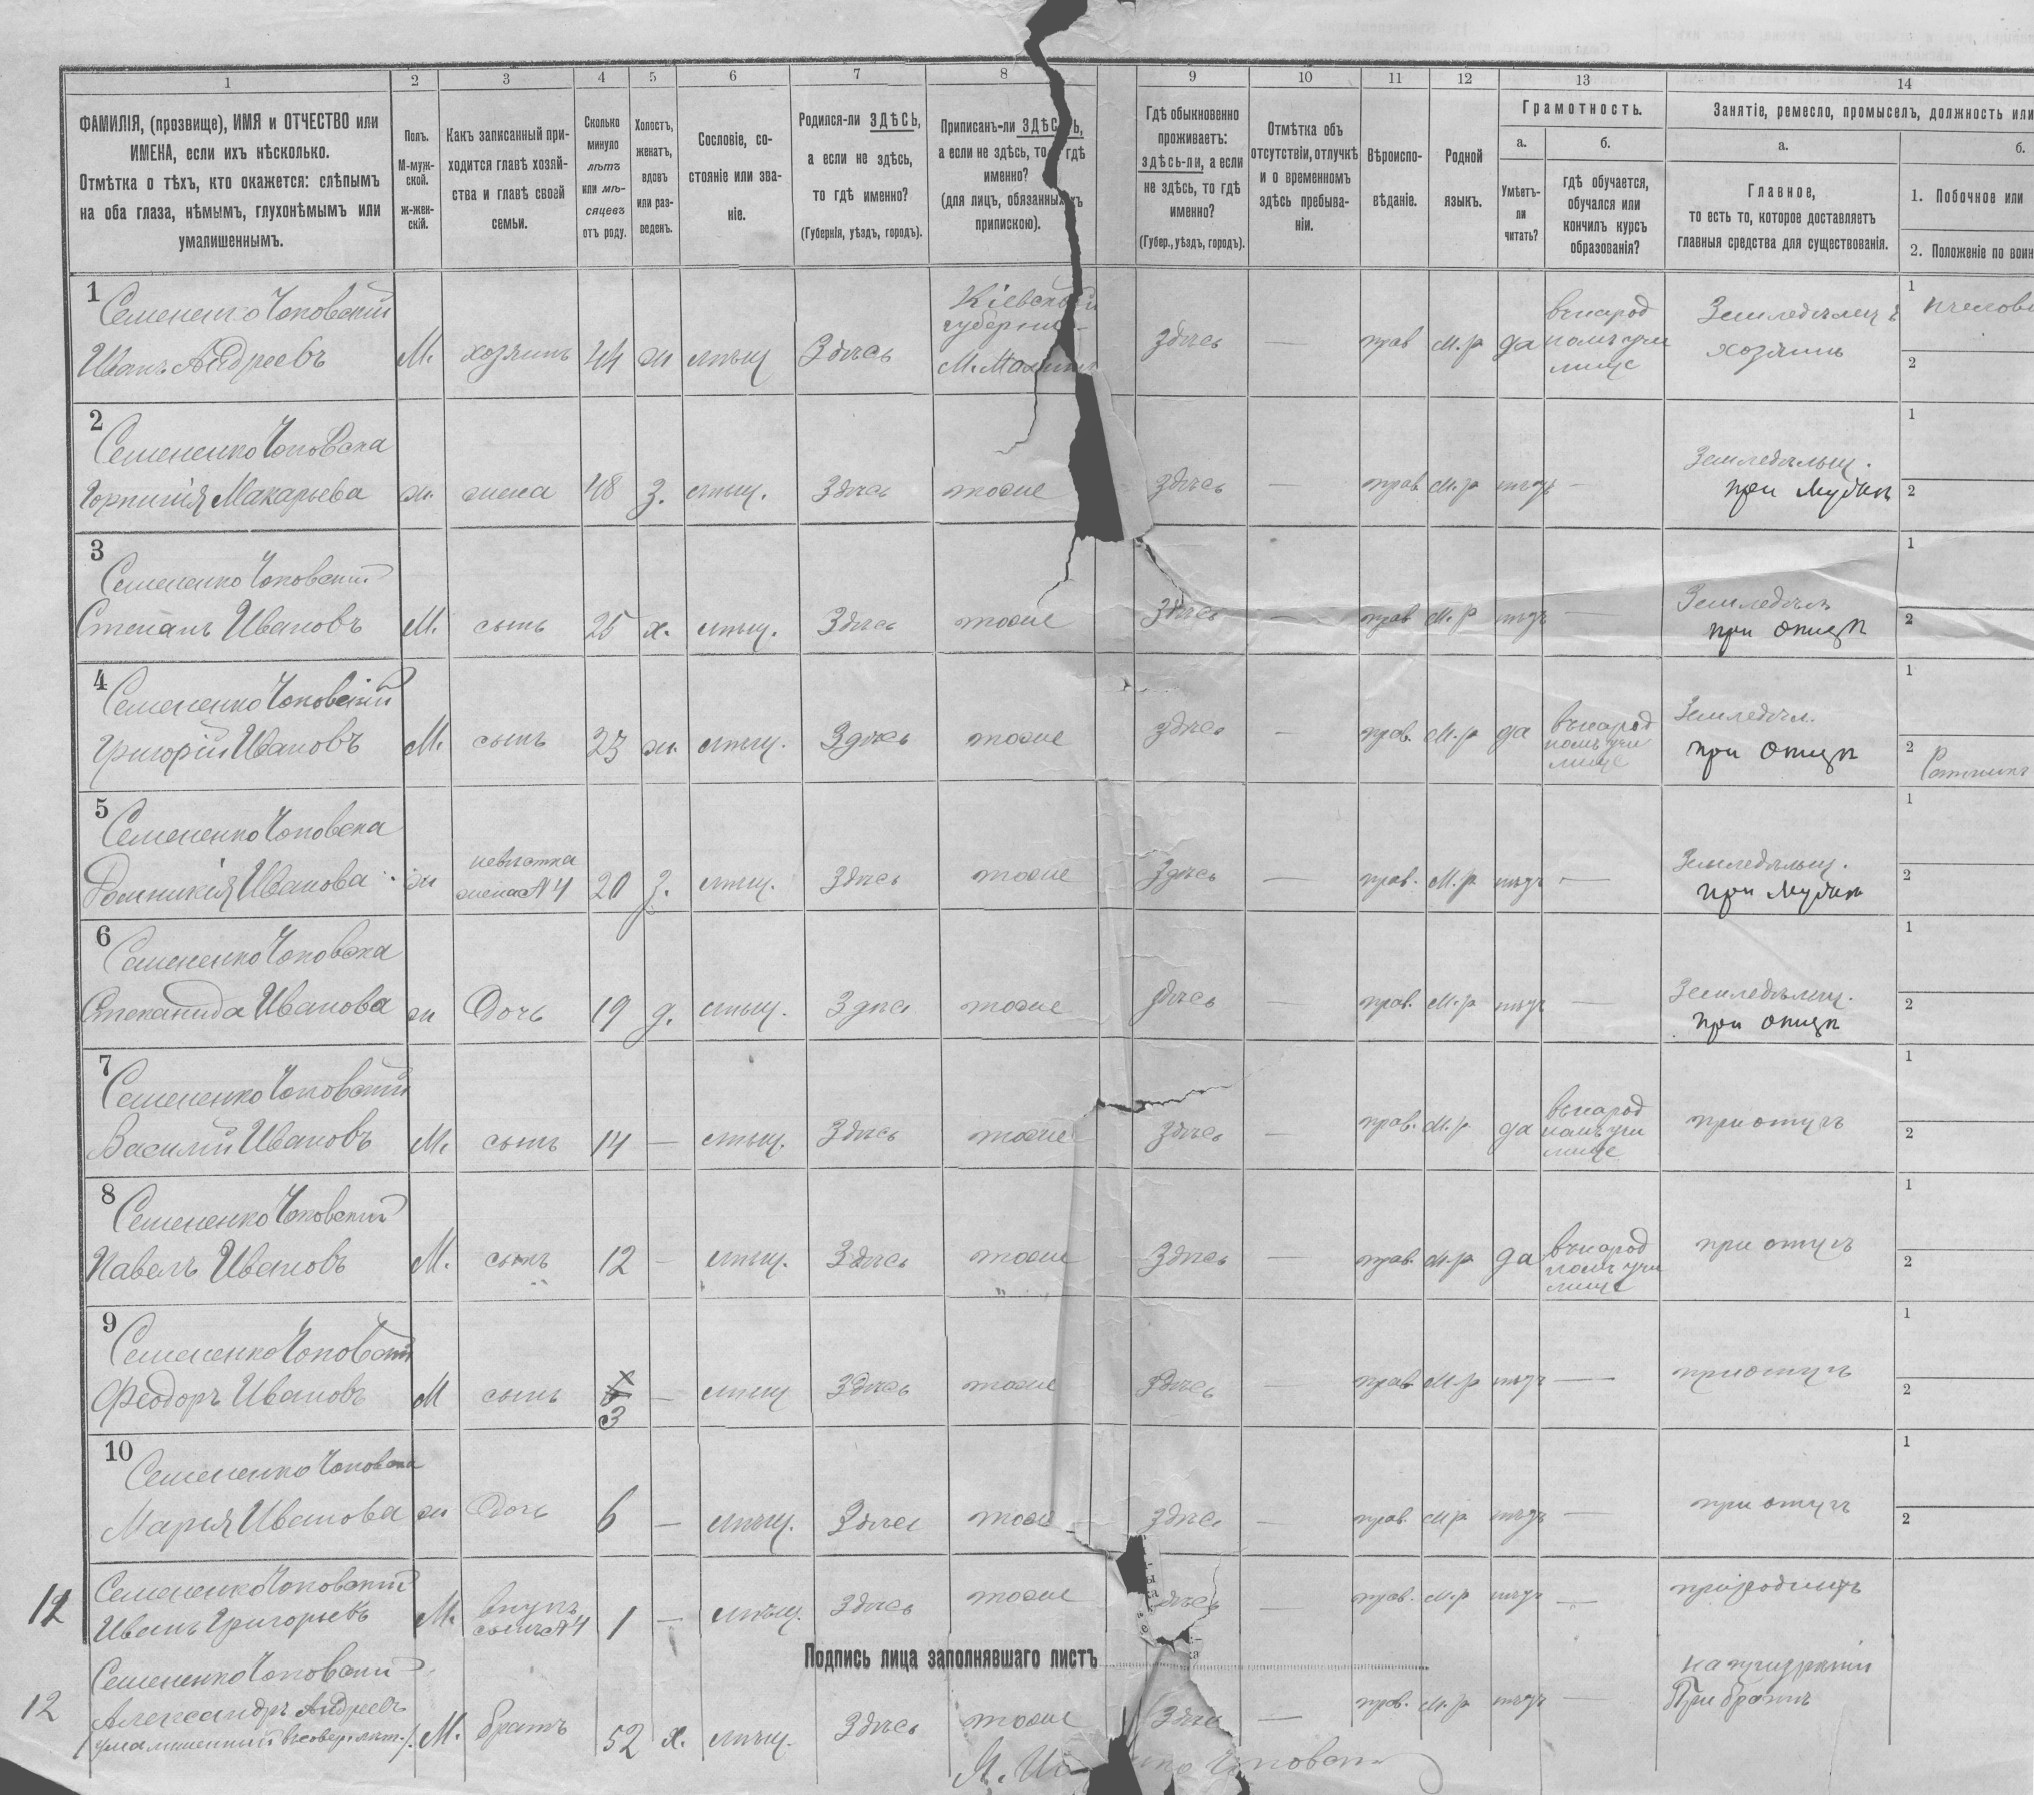 1 2 3 4 5 6 7 8 9 10 11 12 13 14
ФАМИЛІЯ, (прозвище), ИМЯ и ОТЧЕСТВО или
ИМЕНА, если ихъ нѣсколько.
Отмѣтка о тѣхъ, кто окажется: слѣпымъ
на оба глаза, нѣмымъ, глухонѣмымъ или
умалишеннымъ.
Полъ.
М-муж-
ской.
ж-жен-
скій.
Какъ записанный при-
ходится главѣ хозяй-
ства и главѣ своей
семьи.
Сколько
минуло
лѣтъ
или мѣ-
сяцевъ
отъ роду.
Холостъ,
женатъ,
вдовъ
или раз-
веденъ.
Сословіе, со-
стояніе или зва-
ніе.
Родился-ли ЗДѢСЬ,
а если не здѣсь,
то гдѣ именно?
(Губернія, уѣздъ, городъ).
Приписанъ-ли ЗДѢСЬ,
а если не здѣсь, то гдѣ
именно?
(для лицъ, обязанныхъ
припискою).
Гдѣ обыкновенно
проживаетъ:
здѣсь-ли, а если
не здѣсь, то гдѣ
именно?
(Губер., уѣздъ, городъ).
Отмѣтка объ
отсутствіи, отлучкѣ
и о временномъ
здѣсь пребыва-
ніи.
Вѣроиспо-
вѣданіе.
Родной
языкъ.
Грамотность.
а.
Умѣетъ-
ли
читать?
б.
гдѣ обучается,
обучался или
кончилъ курсъ
образованія?
Занятіе, ремесло, промыселъ, должность или
а.
Главное,
то есть то, которое доставляетъ
главныя средства для существованія.
б.
1. Побочное или
2. Положеніе по воин
1
Семененко Чоповский
Иванъ Андреевъ М. хозяинъ 44 ж мѣщ Здѣсь
Кіевской
губерніи
М. Малинъ
здѣсь — прав м.р да
въ народ
номъ учи
лище
Земледѣлецъ
хозяинъ
1
2
2
Семененко Чоповска
Горпинія Макарьева ж. жена 48 З. мѣщ. Здѣсь тоже здѣсь — прав м.р нѣтъ —
Земледѣльч.
при мужѣ
1
2
3
Семененко Чоповский
Степанъ Ивановъ М. сынъ 25 х. мѣщ. Здѣсь тоже Здѣсь — прав м.р нѣтъ —
Земледѣл
при отцѣ
1
2
4
Семененко Чоповский
Григорій Ивановъ М. сынъ 23 ж. мѣщ. Здѣсь тоже здѣсь — прав. м.р да
въ народ
номъ учи
лище
Земледѣл.
при отцѣ
1
2
Ратникъ
5
Семененко Чоповска
Домникія Иванова ж
невѣстка
жена №4
20 З. мѣщ. Здѣсь тоже Здѣсь — прав. м.р нѣтъ —
Земледѣльч.
при мужѣ
1
2
6
Семененко Чоповска
Степанида Иванова ж Дочь 19 д. мѣщ. Здѣсь тоже здѣсь — прав. м.р нѣтъ —
Земледѣльч.
при отцѣ
1
2
7
Семененко Чоповский
Василий Ивановъ М. сынъ 14 — мѣщ. Здѣсь тоже Здѣсь — прав. м.р. да
въ народ
номъ учи
лище
при отцѣ
1
2
8
Семененко Чоповский
Павелъ Ивановъ М. сынъ 12 — мѣщ. Здѣсь тоже Здѣсь — прав. м.р да
въ народ
номъ учи
лище
при отцѣ
1
2
9
Семененко Чоповский
Феодоръ Ивановъ М сынъ 3 — мѣщ Здѣсь тоже Здѣсь — прав м.р нѣтъ —
при отцѣ
1
2
10
Семененко Чоповска
Марья Иванова ж Дочь 6 — мѣщ. Здѣсь тоже здѣсь — прав. м.р нѣтъ —
при отцѣ
1
2
Семененко Чоповский
Иванъ Григорьевъ М.
внукъ
сынъ №4
1 — мѣщ. Здѣсь тоже здѣсь — прав. м.р нѣтъ —
Подпись лица заполнявшаго листъ
12
Семененко Чоповский
Александръ Андреевъ
умалишенний М. братъ 52 х. мѣщ. Здѣсь тоже Здѣсь — прав. м.р нѣтъ —
При братѣ
Чоповский